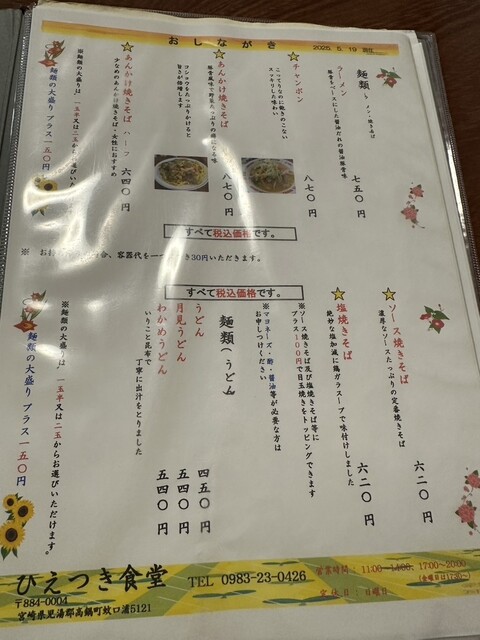 おしながき
2025. 5. 19 現在
麺類(ラーメン・焼きそば)
ラーメン 七五〇円
豚骨をベースにした醤油だれの醤油豚骨味
☆チャンポン 八七〇円
こってりなのに飽きのこない
スッキリした味わい
☆あんかけ焼きそば 八七〇円
豚骨風味で野菜たっぷりの癖になる味
コショウをたっぷりかけると
旨さが倍増します
☆あんかけ焼きそば ハーフ 六四〇円
少なめのあんかけ焼きそば・女性におすすめ
※麺類の大盛りは 一玉半又は二玉からお選びいた
麺類の大盛り プラス一五〇円
すべて税込価格です。
※ お持
容器代を一
き30円いただきます。
すべて税込価格です。
☆ソース焼きそば 六二〇円
濃厚なソースたっぷりの定番焼きそば
☆塩焼きそば 六二〇円
絶妙な塩加減に鶏ガラスープで味付けしました
※ソース焼きそば及び塩焼きそば等に
プラス100円で目玉焼きをトッピングできます
※マヨネーズ・酢・醤油等が必要な方は
お申しつけください
麺類(うどん)
うどん 四五〇円
月見うどん 五四〇円
わかめうどん 五四〇円
いりこと昆布で
丁寧に出汁をとりました
※麺類の大盛りは 一玉半又は二玉からお選びいただけます。
麺類の大盛り プラス一五〇円
ひえつき食堂
TEL 0983-23-0426
営業時間:11:00-14:00、17:00~20:00
(金曜日は17:30~)
定休日:日曜日
〒884-0004
宮崎県児湯郡高鍋町蚊口浦5121